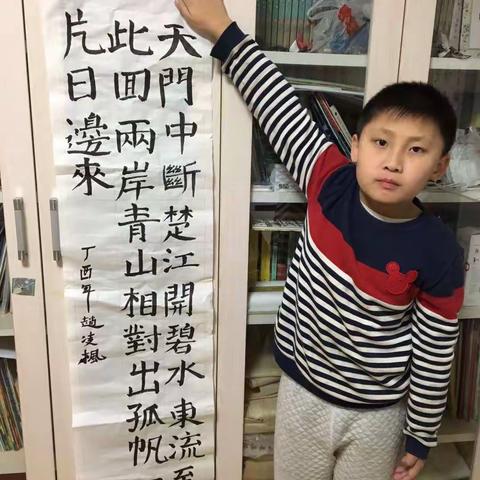 天門中斷楚江開碧水東流至
此回兩岸青山相對出孤帆一
片日邊來
丁酉年趙凌楓